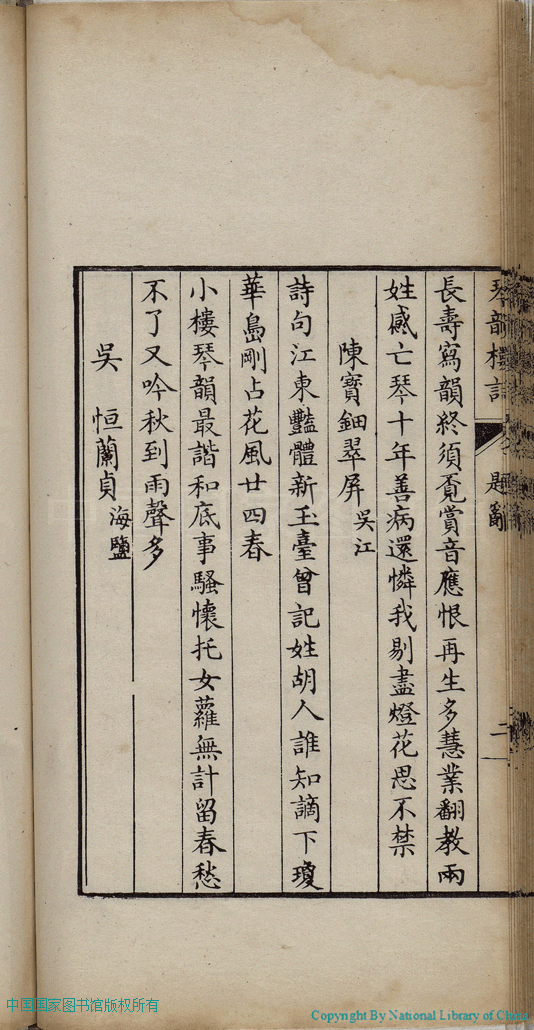 琴韻樓詩 題辭 二
長壽寫韻終須覓賞音應恨再生多慧業翻教兩
姓感亡琴十年善病還憐我剔盡燈花思不禁
陳寶鈿翠屏 吳江
詩句江東豔體新玉臺曾記姓胡人誰知謫下瓊
華島剛占花風廿四春
小樓琴韻最諧和底事騷懷托女蘿無計留春愁
不了又吟秋到雨聲多
吳 恒蘭貞 海鹽
中国国家图书馆版权所有
Copyright By National Library of China